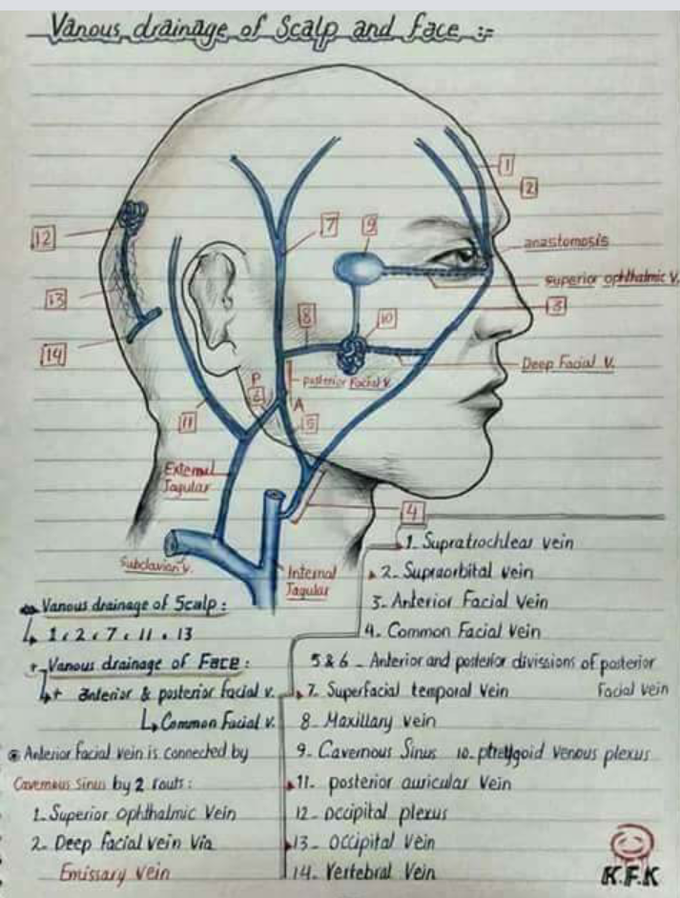 Vanous drainage of Scalp and face :=
1
2
7
9
12
anastomosis
superior ophthalmic v.
13
3
8
10
14
Deep Facial V.
posterior Facial v.
P
6
A
11
5
External
Jagular
4
Subclavian v.
Internal
Jagular
Vanous drainage of Scalp :
1 , 2 , 7 , 11 , 13
+ Vanous drainage of Face :
+ anterior & posterior facial v.
Common Facial v.
Anterior facial vein is connected by
Cavernous sinus by 2 routs :
1. Superior ophthalmic Vein
2. Deep facial vein Via
Emissary vein
1. Supratrochlear vein
2. Supraorbital vein
3. Anterior Facial Vein
4. Common Facial Vein
5 & 6 - Anterior and posterior divissions of posterior
Facial vein
7. Superfacial temporal Vein
8- Maxillary vein
9- Cavernous Sinus 10- pterygoid venous plexus
11. posterior auricular Vein
12- occipital plexus
13- occipital Vein
14- Vertebral Vein
K.F.K